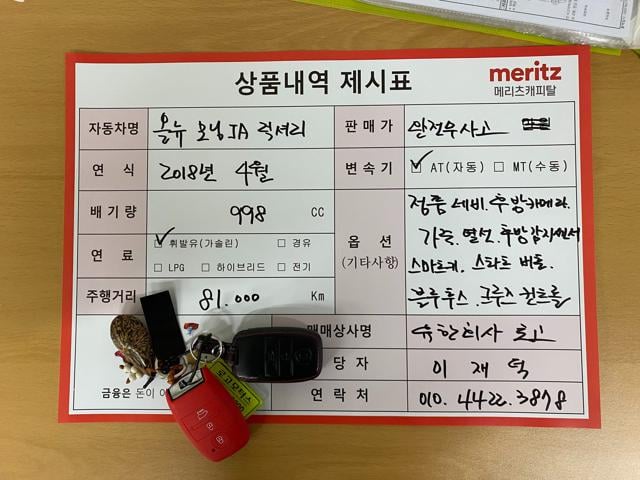 상품내역 제시표
meritz
메리츠캐피탈
자동차명 올뉴 모닝JA 럭셔리
판매가 완전무사고
연 식 2018년 4월
변속기 ☑ AT(자동) □ MT(수동)
배기량 998 CC
옵 션
(기타사항)
정품 네비.후방카메라.
가죽.열선.후방감지센서
스마트키.스타트 버튼.
블루투스.크루즈 컨트롤
연 료 ☑ 휘발유(가솔린) □ 경유
□ LPG □ 하이브리드 □ 전기
주행거리 81.000 Km
매매상사명 유한회사 로고
당 자 이 재 덕
연 락 처 010.4422.3878
금융은 돈이 아
로고모터스